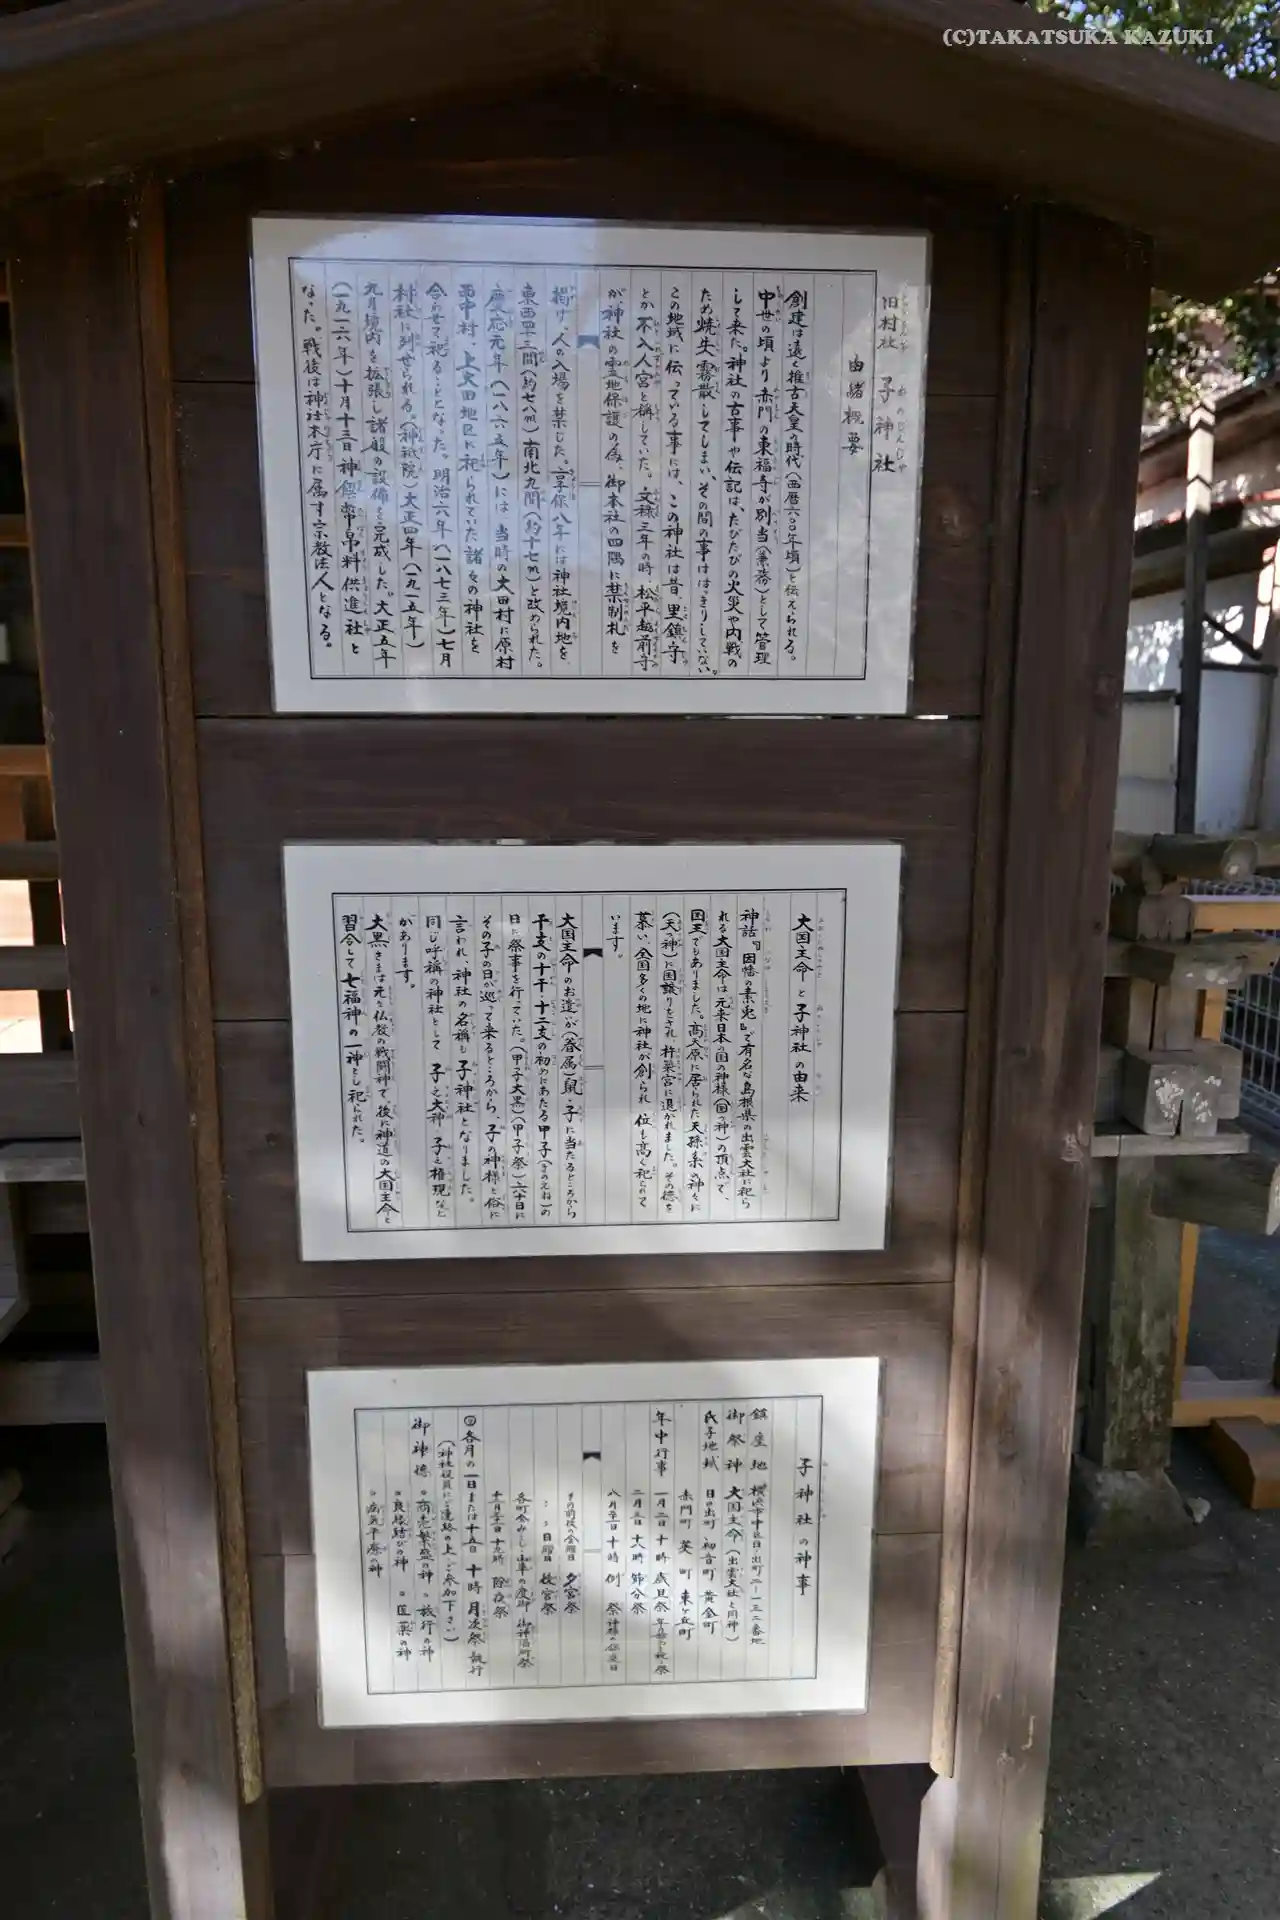 (C)TAKATSUKA KAZUKI
旧村社 子神社
由緒概要
創建は遠く推古天皇の時代(西暦六〇〇年頃)と伝えられる。
中世の頃より赤門の東福寺が別当(兼務)として管理
して来た。神社の古事や伝記は、たびたびの火災や内戦の
ため焼失霧散してしまい、その間の事ははっきりしていない。
この地域に伝っている事には、この神社は昔、里鎮守
とか不入人宮と称していた。文禄三年の時、松平越前守
が、神社の霊地保護の為、御本社の四隅に禁制札を
掲げ、人の入場を禁じた。享保八年には神社境内地を、
東西四十三間(約七八m)南北九間(約十七m)と改められた。
慶応元年(一八六五年)には、当時の太田村に原村
西中村、上太田地区に祀られていた諸々の神社を
合わせて祀ることとなった。明治六年(一八七三年)七月
村社に列せられる。(神祇院)大正四年(一九一五年)
九月境内を拡張し諸般の設備を完成した。大正五年
(一九一六年)十月十三日神饌幣帛料供進社と
なった。戦後は神社本庁に属す宗教法人となる。
大国主命と子神社の由来
神話『因幡の素兎』で有名な島根県の出雲大社に祀ら
れる大国主命は元来日本の国の神様(国つ神)の頂点で、
国王でもありました。高天原に居られた天孫系の神々に
(天つ神)に国譲りをされ杵築宮に退かれました。その徳を
慕い、全国多くの地に神社が創られ位も高く祀られて
います。
大国主命のお遣いが(眷属)鼠・子に当たるところから
干支の十干・十二支の初めにあたる甲子(きのえね)の
日に祭事を行っていた。(甲子大黒)(甲子祭)六十日に
その子の日が巡って来るところから、子の神様と俗に
言われ、神社の名称も子神社となりました。
同じ呼称の神社として 子之大神 子之権現など
があります。
大黒さまは元々仏教の戦闘神で、後に神道の大国主命と
習合して七福神の一神とし祀られた。
子神社の神事
鎮座地 横浜市中区日ノ出町二ー一三二番地
御祭神 大国主命(出雲大社と同神)
氏子地域 日の出町 初音町 黄金町
赤門町 英町 東ヶ丘町
年中行事 一月二日 十時 歳旦祭
二月三日 十六時 節分祭
八月廿一日 十時 例祭
その前後の金曜日 夕宮祭
〃 〃 日曜日 後宮祭
各町会みこし・山車の渡御 御神酒所祭
十二月三十一日 十九時 除夜祭
各月の一日または十五日 十時 月次祭 執行
(神社役員にご連絡の上、ご参加下さい)
御神徳 ○商売繁盛の神 ○旅行の神
○良縁結びの神 ○医薬の神
○病気平癒の神